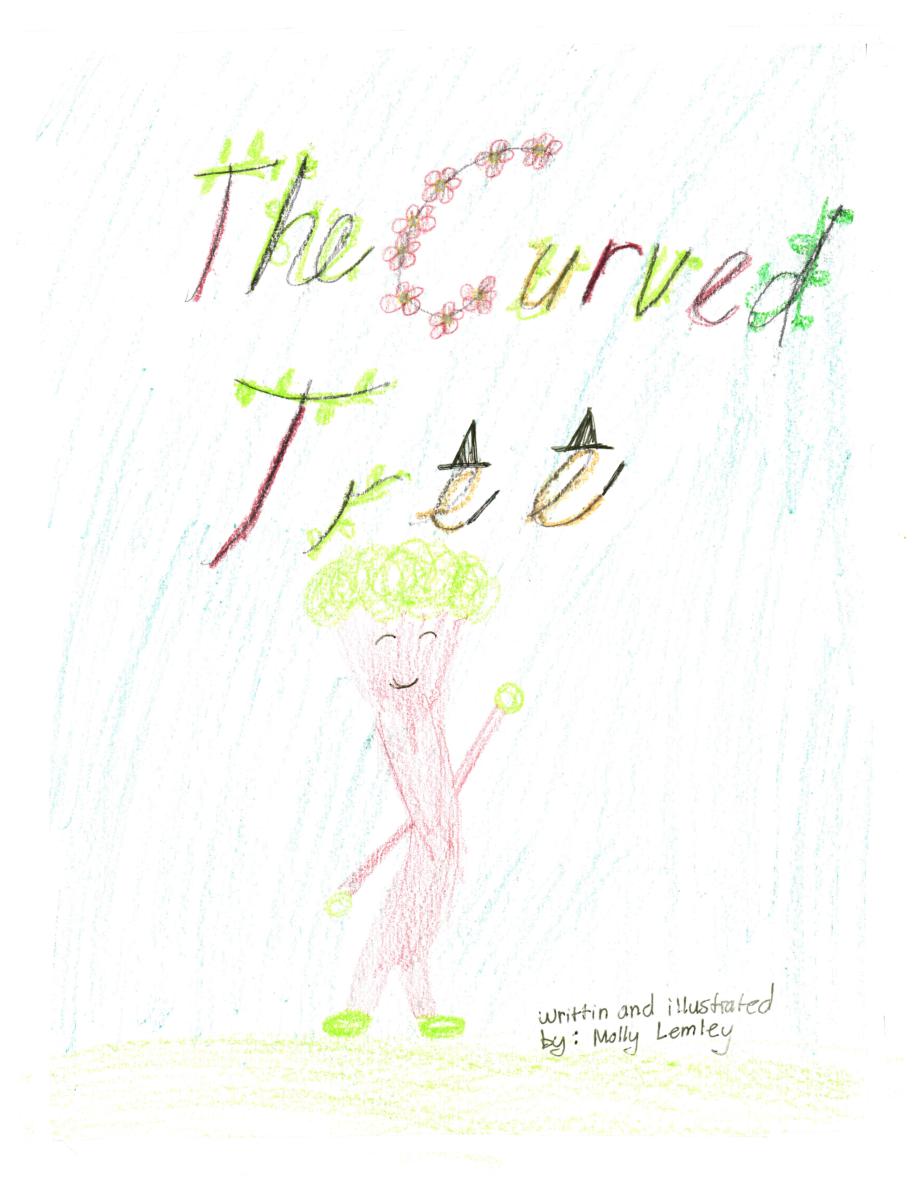 The Curved
Tree
writtin and illustrated
by: Molly Lemley